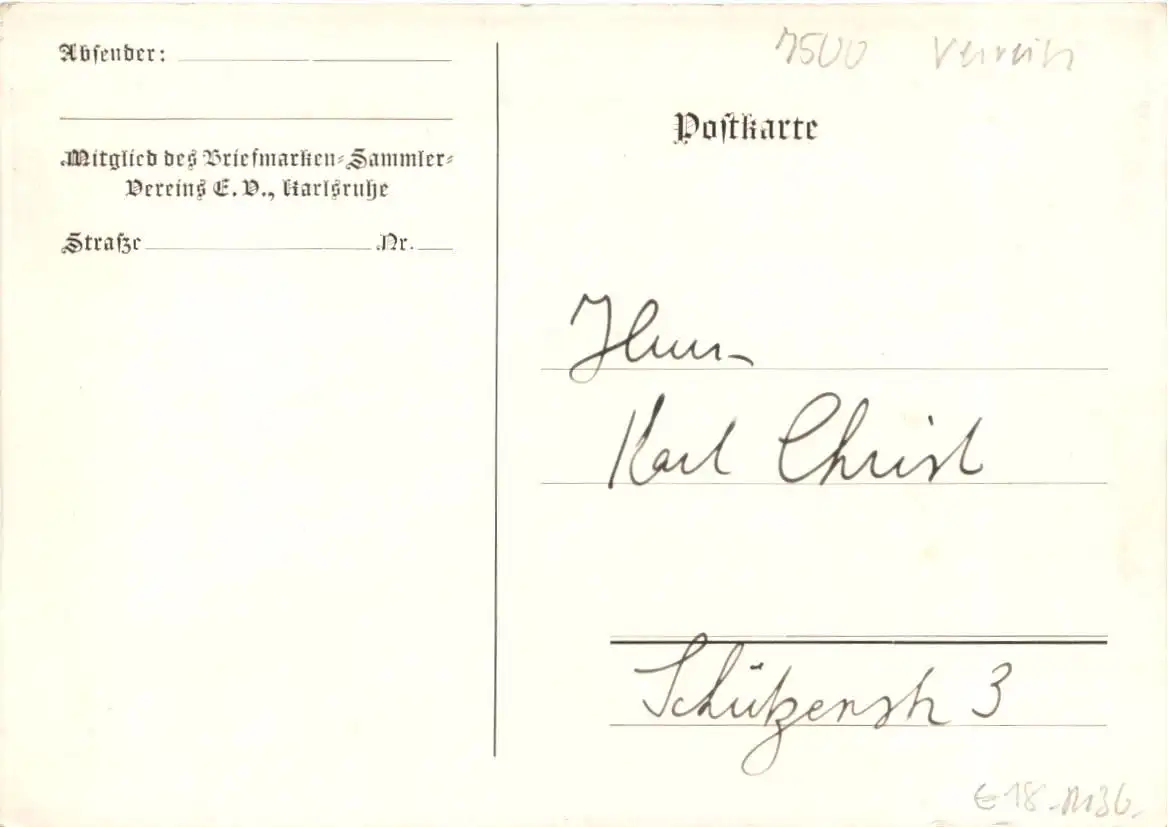 Absender:
Mitglied des Briefmarken-Sammler-
Vereins E. V., Karlsruhe
Straße Nr.
7500 Verein
Postkarte
Herrn
Karl Christ
Schützenstr 3
€ 18.-